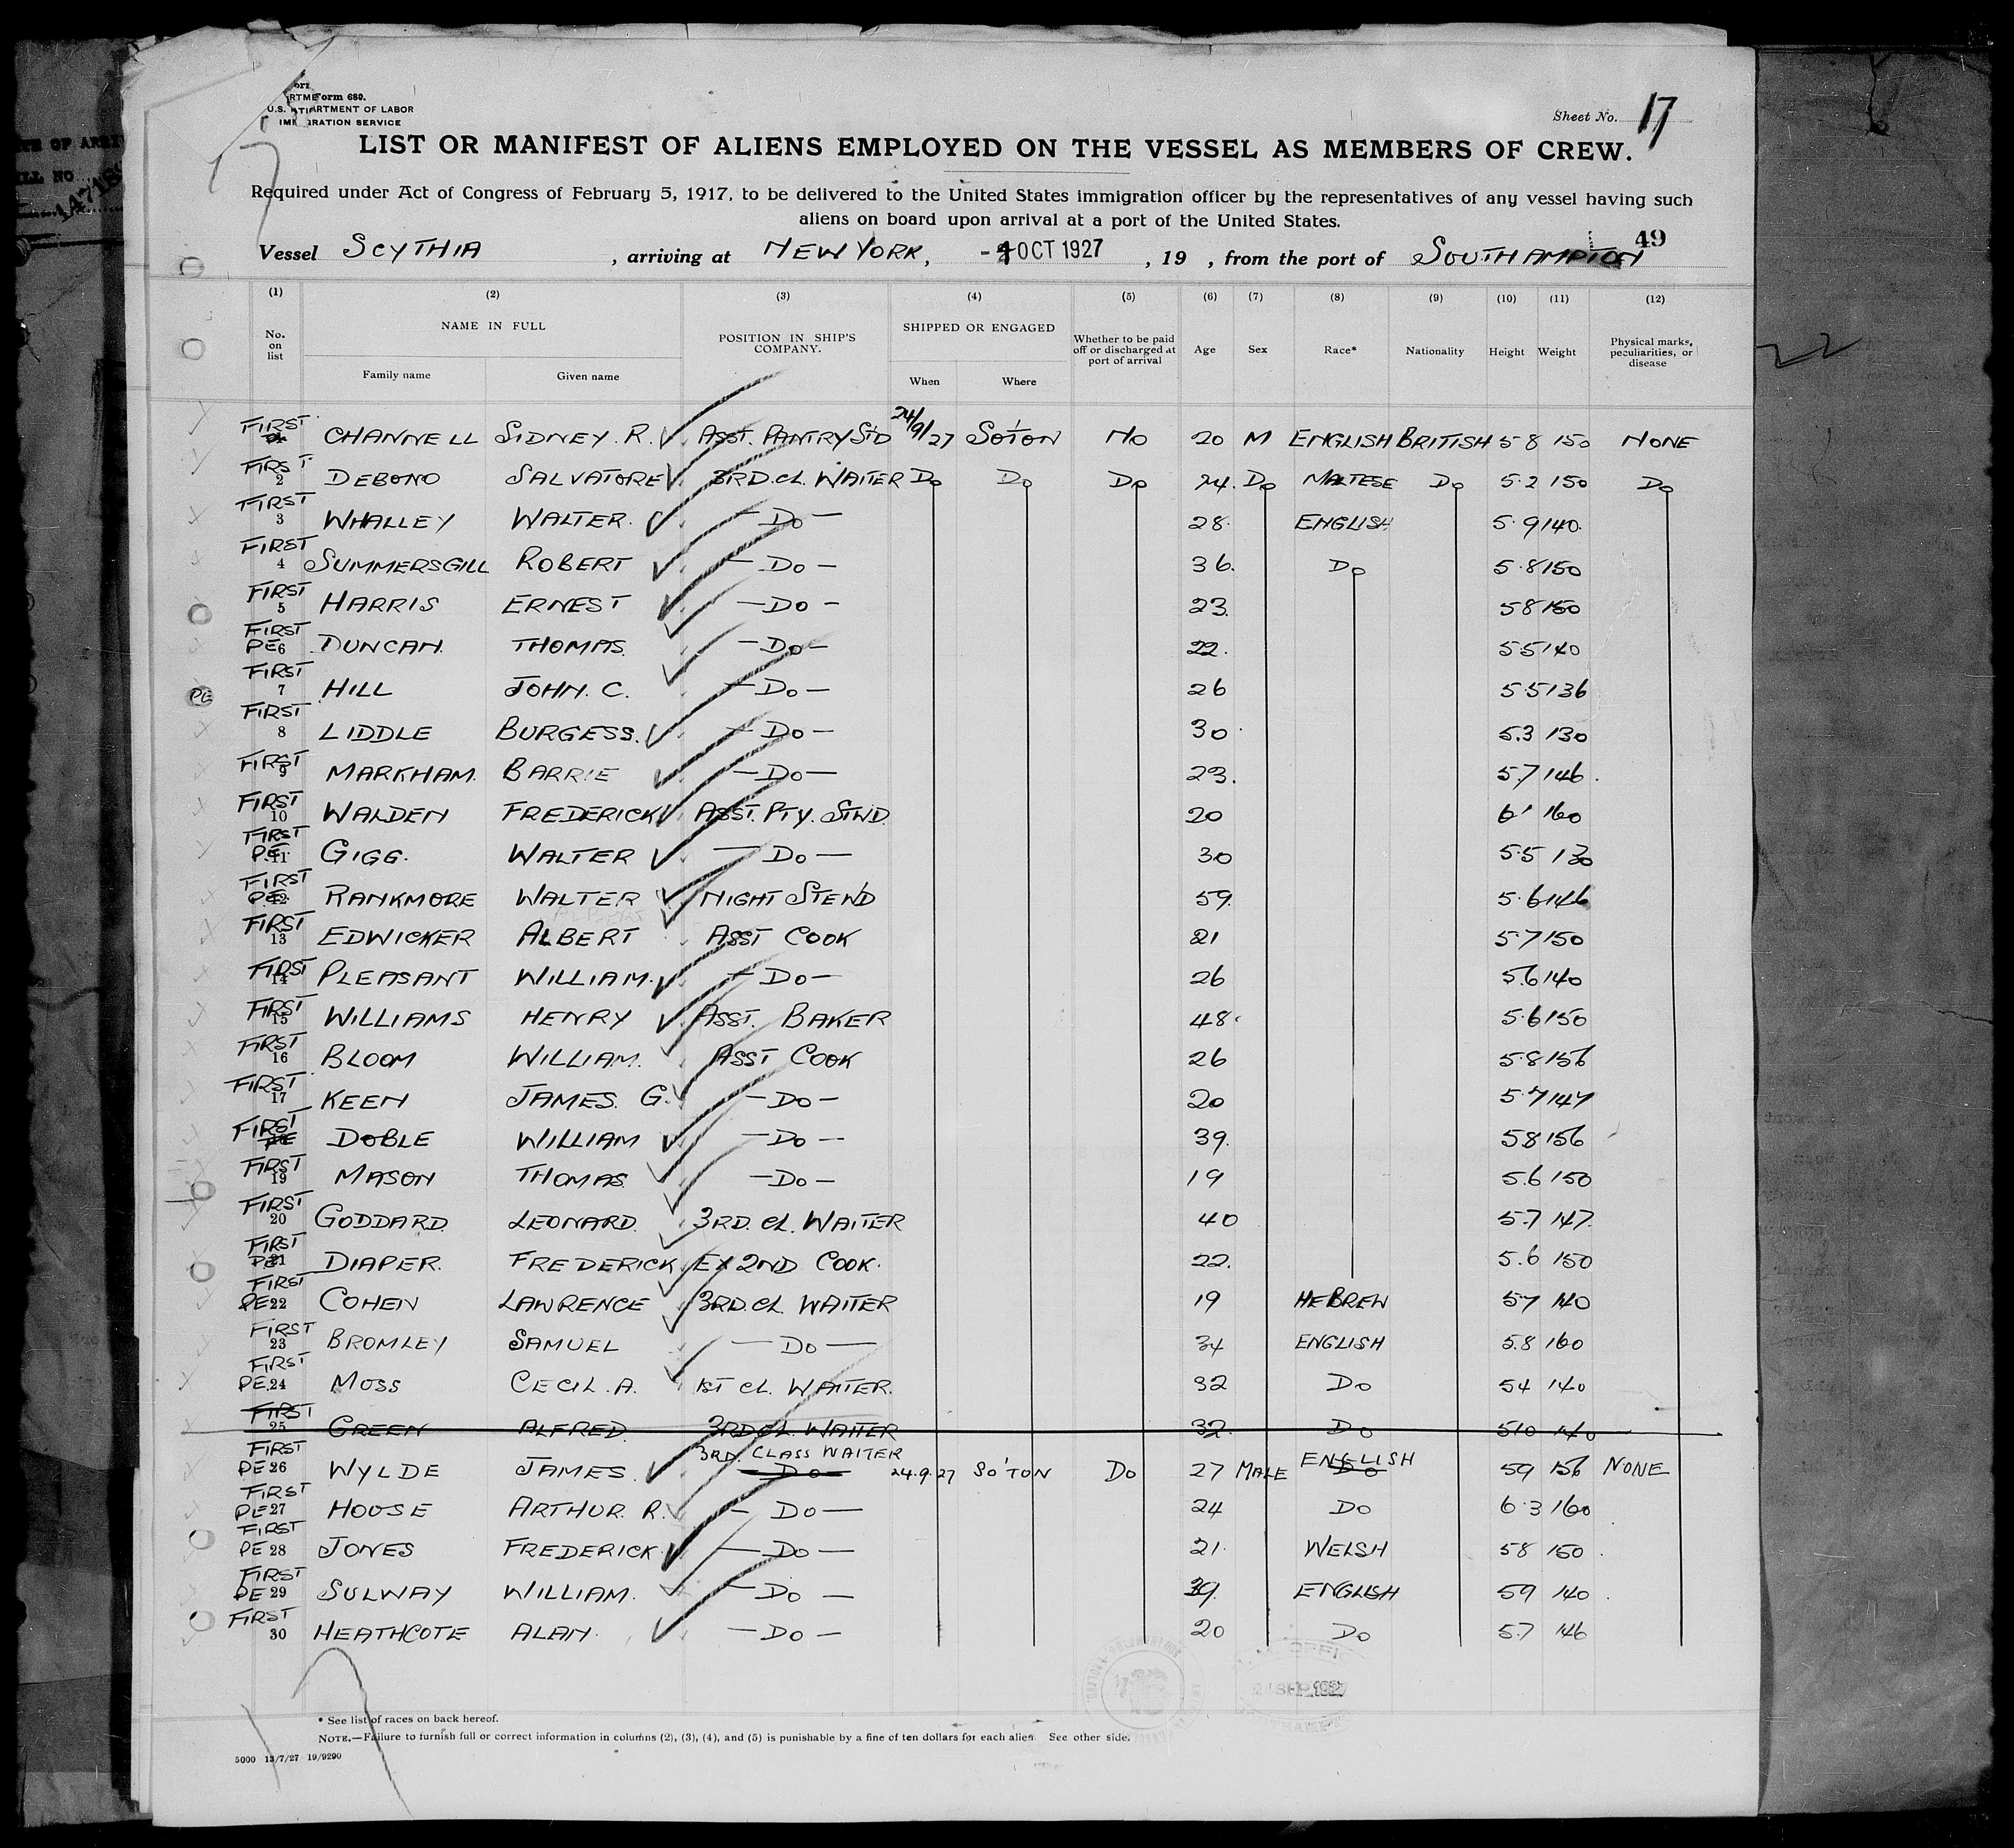 Form 680.
U.S. DEPARTMENT OF LABOR
IMMIGRATION SERVICE
Sheet No. 17
LIST OR MANIFEST OF ALIENS EMPLOYED ON THE VESSEL AS MEMBERS OF CREW.
Required under Act of Congress of February 5, 1917, to be delivered to the United States immigration officer by the representatives of any vessel having such
aliens on board upon arrival at a port of the United States.
49
Vessel SCYTHIA, arriving at NEW YORK, OCT 1927, 19 , from the port of SOUTHAMPTON
(1) (2) (3) (4) (5) (6) (7) (8) (9) (10) (11) (12)
No. on list NAME IN FULL Family name Given name POSITION IN SHIP'S COMPANY. SHIPPED OR ENGAGED When Where Whether to be paid off or discharged at port of arrival Age Sex Race* Nationality Height Weight Physical marks, peculiarities, or disease
FIRST CHANNELL SIDNEY. R. ASST. PANTRY STD 24/9/27 SO'TON NO 20 M ENGLISH BRITISH 5 8 150 NONE
FIRST 2 DEBONO SALVATORE 3RD. CL. WAITER DO DO DO 24. DO MALTESE DO 5.2 150 DO
FIRST 3 WHALLEY WALTER. — DO — 28. ENGLISH 5.9 140.
FIRST 4 SUMMERSGILL ROBERT — DO — 36. DO 5.8 150
FIRST 5 HARRIS ERNEST — DO — 23. 5 8 150
FIRST PE 6 DUNCAN. THOMAS. — DO — 22. 5 5 140
FIRST 7 HILL JOHN. C. — DO — 26 5.5 136
PE
FIRST 8 LIDDLE BURGESS. — DO — 30. 5.3 130
FIRST 9 MARKHAM. BARRIE — DO — 23. 5.7 146.
FIRST 10 WALDEN FREDERICK ASST. PTY. STWD. 20 6' 160
FIRST PE 11 GIGG. WALTER — DO — 30 5.5 130
FIRST PE 12 RANKMORE WALTER NIGHT STEWD 59. 5.6 146
FIRST 13 EDWICKER ALBERT ASST COOK 21 5.7 150
FIRST 14 PLEASANT WILLIAM. — DO — 26 5.6 140
FIRST 15 WILLIAMS HENRY ASST. BAKER 48. 5.6 150
FIRST 16 BLOOM WILLIAM. ASST COOK 26 5.8 156
FIRST 17 KEEN JAMES. G. — DO — 20 5.7 147
FIRST PE DOBLE WILLIAM — DO — 39. 5 8 156
FIRST 19 MASON THOMAS. — DO — 19 5.6 150
FIRST 20 GODDARD. LEONARD. 3RD. CL. WAITER 40 5.7 147.
FIRST PE 21 DIAPER. FREDERICK EX 2ND COOK. 22. 5.6 150
FIRST PE 22 COHEN LAWRENCE 3RD. CL. WAITER 19 HEBREW 5 7 140
FIRST 23 BROMLEY SAMUEL — DO — 34 ENGLISH 5.8 160
FIRST PE. 24 MOSS CECIL. A. 1ST CL. WAITER. 32 DO 5 4 140
FIRST 25 GREEN ALFRED. 3RD CL. WAITER 32. DO 5 10 140
FIRST PE 26 WYLDE JAMES. 3RD. CLASS WAITER DO 24.9.27 SO'TON DO 27 MALE ENGLISH DO 5 9 156 NONE
FIRST PE 27 HOUSE ARTHUR. R. — DO — 24 DO 6.3 160
FIRST PE 28 JONES FREDERICK — DO — 21. WELSH 5 8 150.
FIRST PE 29 SULWAY WILLIAM. — DO — 39. ENGLISH 5 9 140.
FIRST 30 HEATHCOTE ALAN. — DO — 20 DO 5.7 146
* See list of races on back hereof.
NOTE.—Failure to furnish full or correct information in columns (2), (3), (4), and (5) is punishable by a fine of ten dollars for each alien. See other side.
5000 13/7/27 19/9290